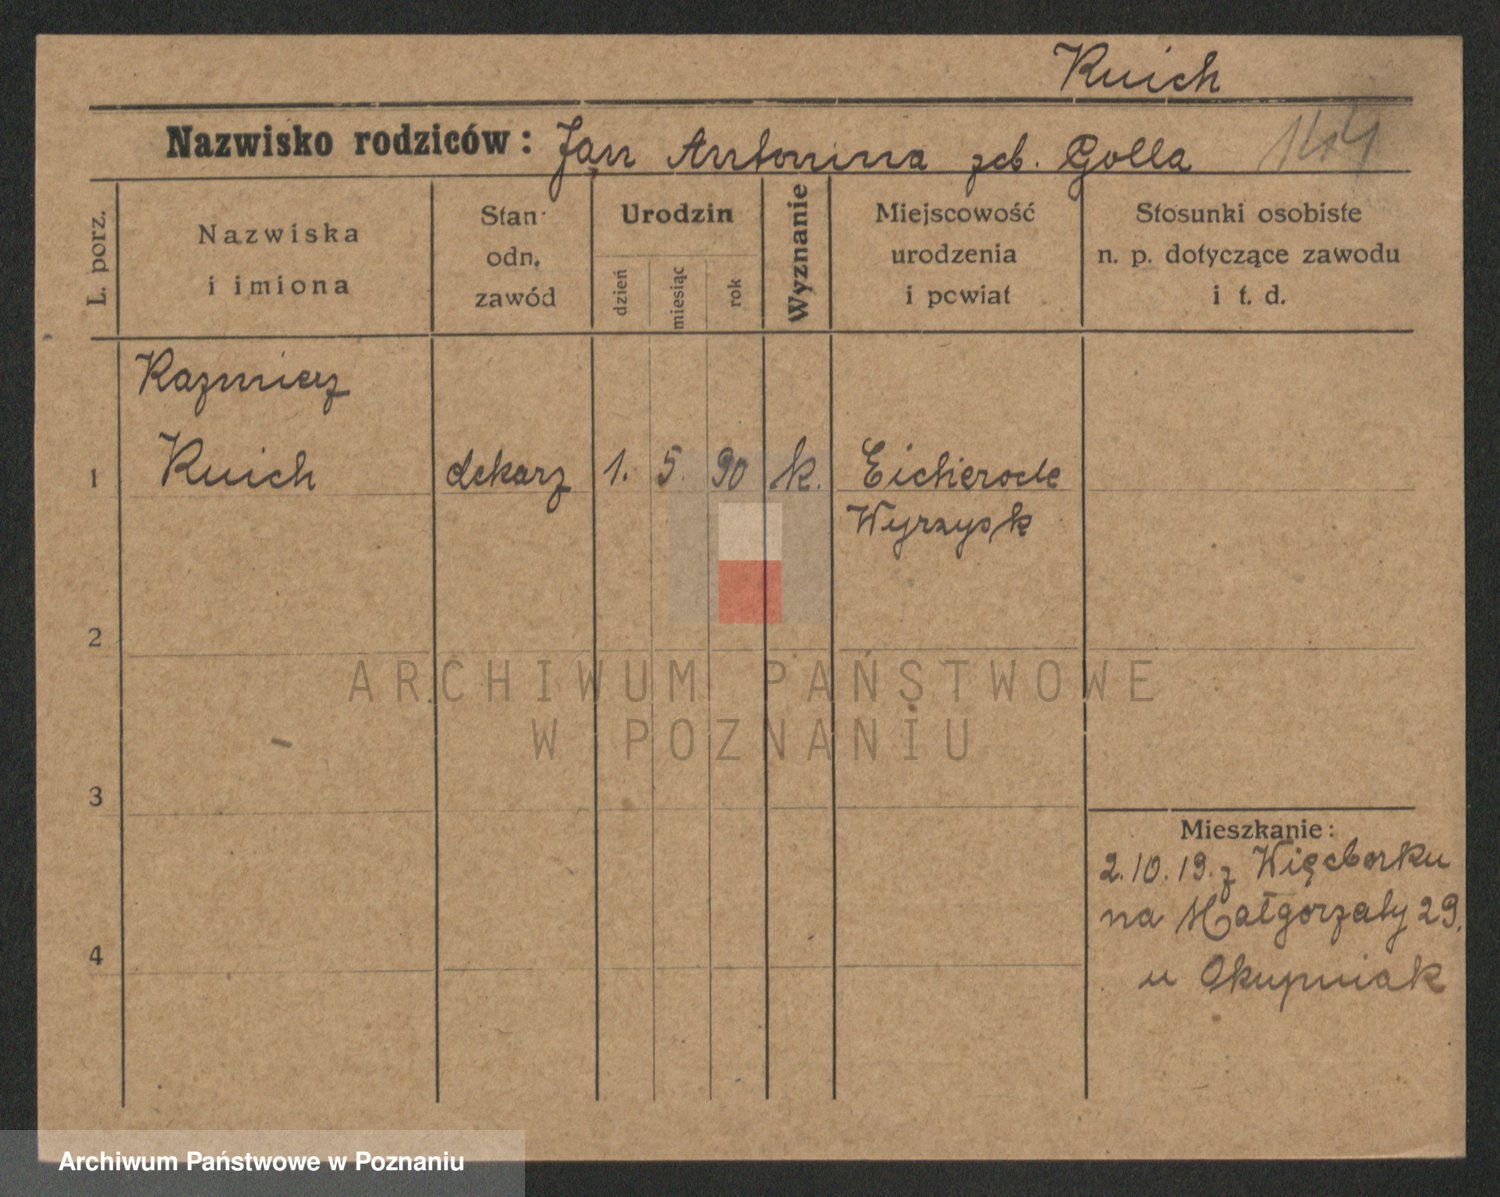 Kuich
Nazwisko rodziców: Jan Antonina geb. Golla 144
L. porz.
Nazwiska
i imiona
Stan
odn.
zawód
Urodzin
dzień
miesiąc
rok
Wyznanie
Miejscowość
urodzenia
i powiat
Stosunki osobiste
n. p. dotyczące zawodu
i t. d.
Kazmierz
1 Kuich dekarz 1. 5. 90 k. EichErode
Wyrzysk
2
ARCHIWUM PAŃSTWOWE
W POZNANIU
3
Mieszkanie:
2.10.19. z Więcborku
na Małgorzaty 29.
4
u Okupniak
Archiwum Państwowe w Poznaniu